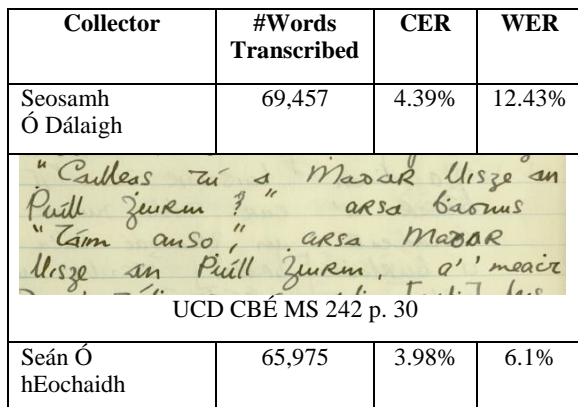 Collector #Words Transcribed CER WER
Seosamh Ó Dálaigh 69,457 4.39% 12.43%
tú a Madar Uisge an
Puill Guirm ?" arsa
"Táim anso," arsa Madar
Uisge an Puill Guirm, a'
UCD CBÉ MS 242 p. 30
Seán Ó hEochaidh 65,975 3.98% 6.1%